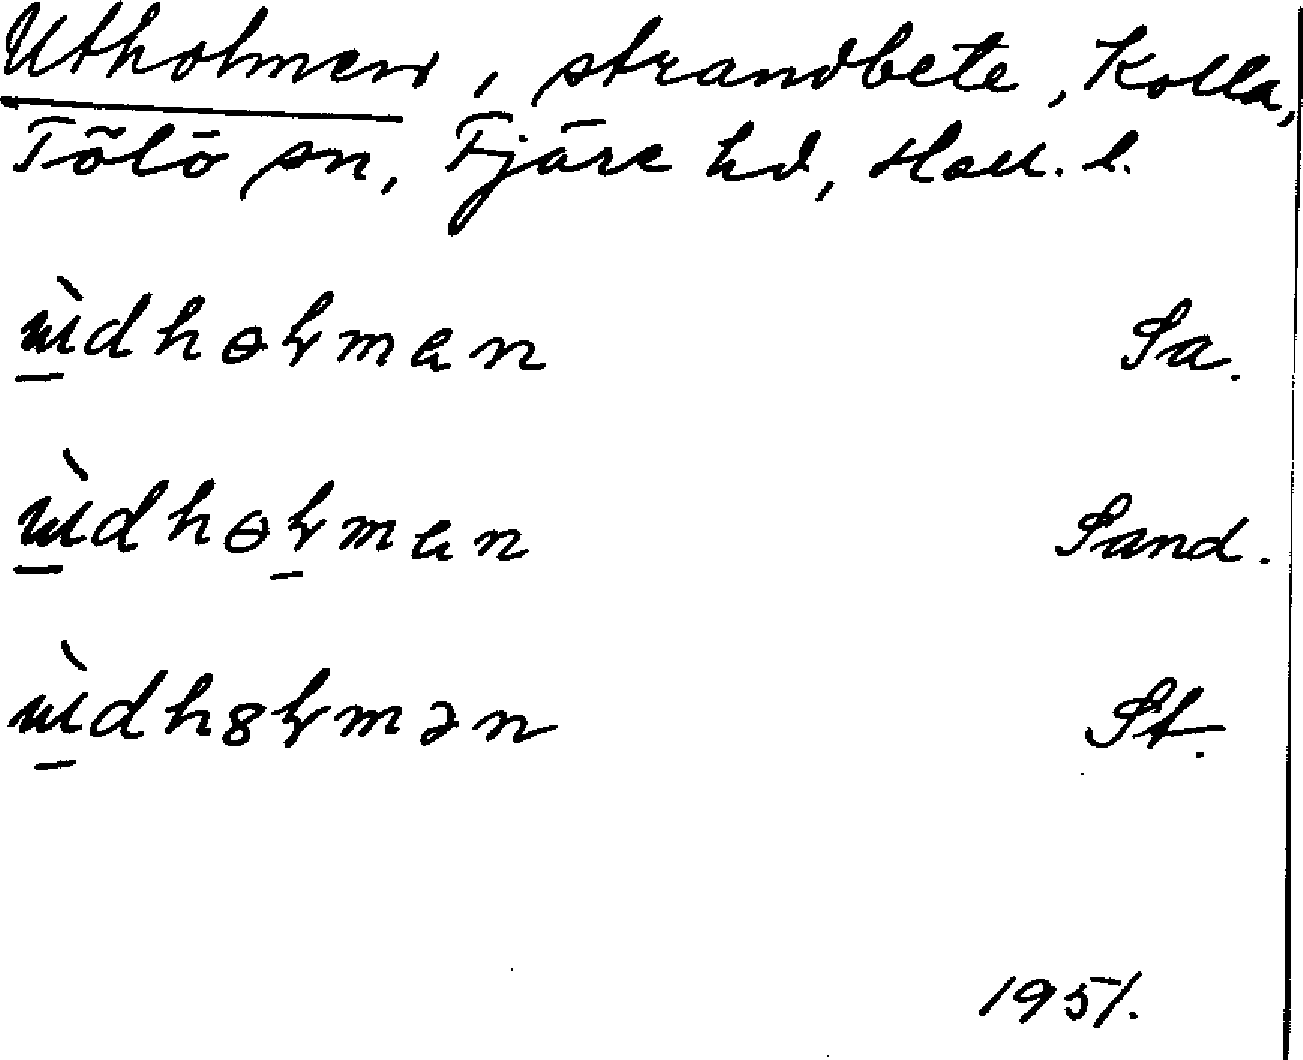 Utholmen, strandbete, Kolla,
Tölö sn, Fjäre hd, Hall. l.
ɯ̱̀dhɵɽman Sa.
ɯ̱̀dhɵɽ̱man Sand.
ɯ̱̀dh8ɽmən St.
1951.